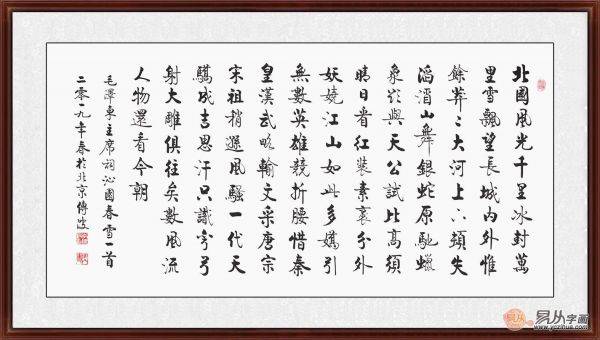 北國風光千里冰封萬
里雪飄望長城內外惟
餘莽々大河上下頓失
滔滔山舞銀蛇原馳蠟
象欲與天公試比高須
晴日看紅裝素裹分外
妖嬈江山如此多嬌引
無數英雄競折腰惜秦
皇漢武略輸文采唐宗
宋祖稍遜風騷一代天
驕成吉思汗只識彎弓
射大雕俱往矣數風流
人物還看今朝
毛澤東主席詞沁園春雪一首
二零一九年春於北京傳
易从字画
www.yczihua.com